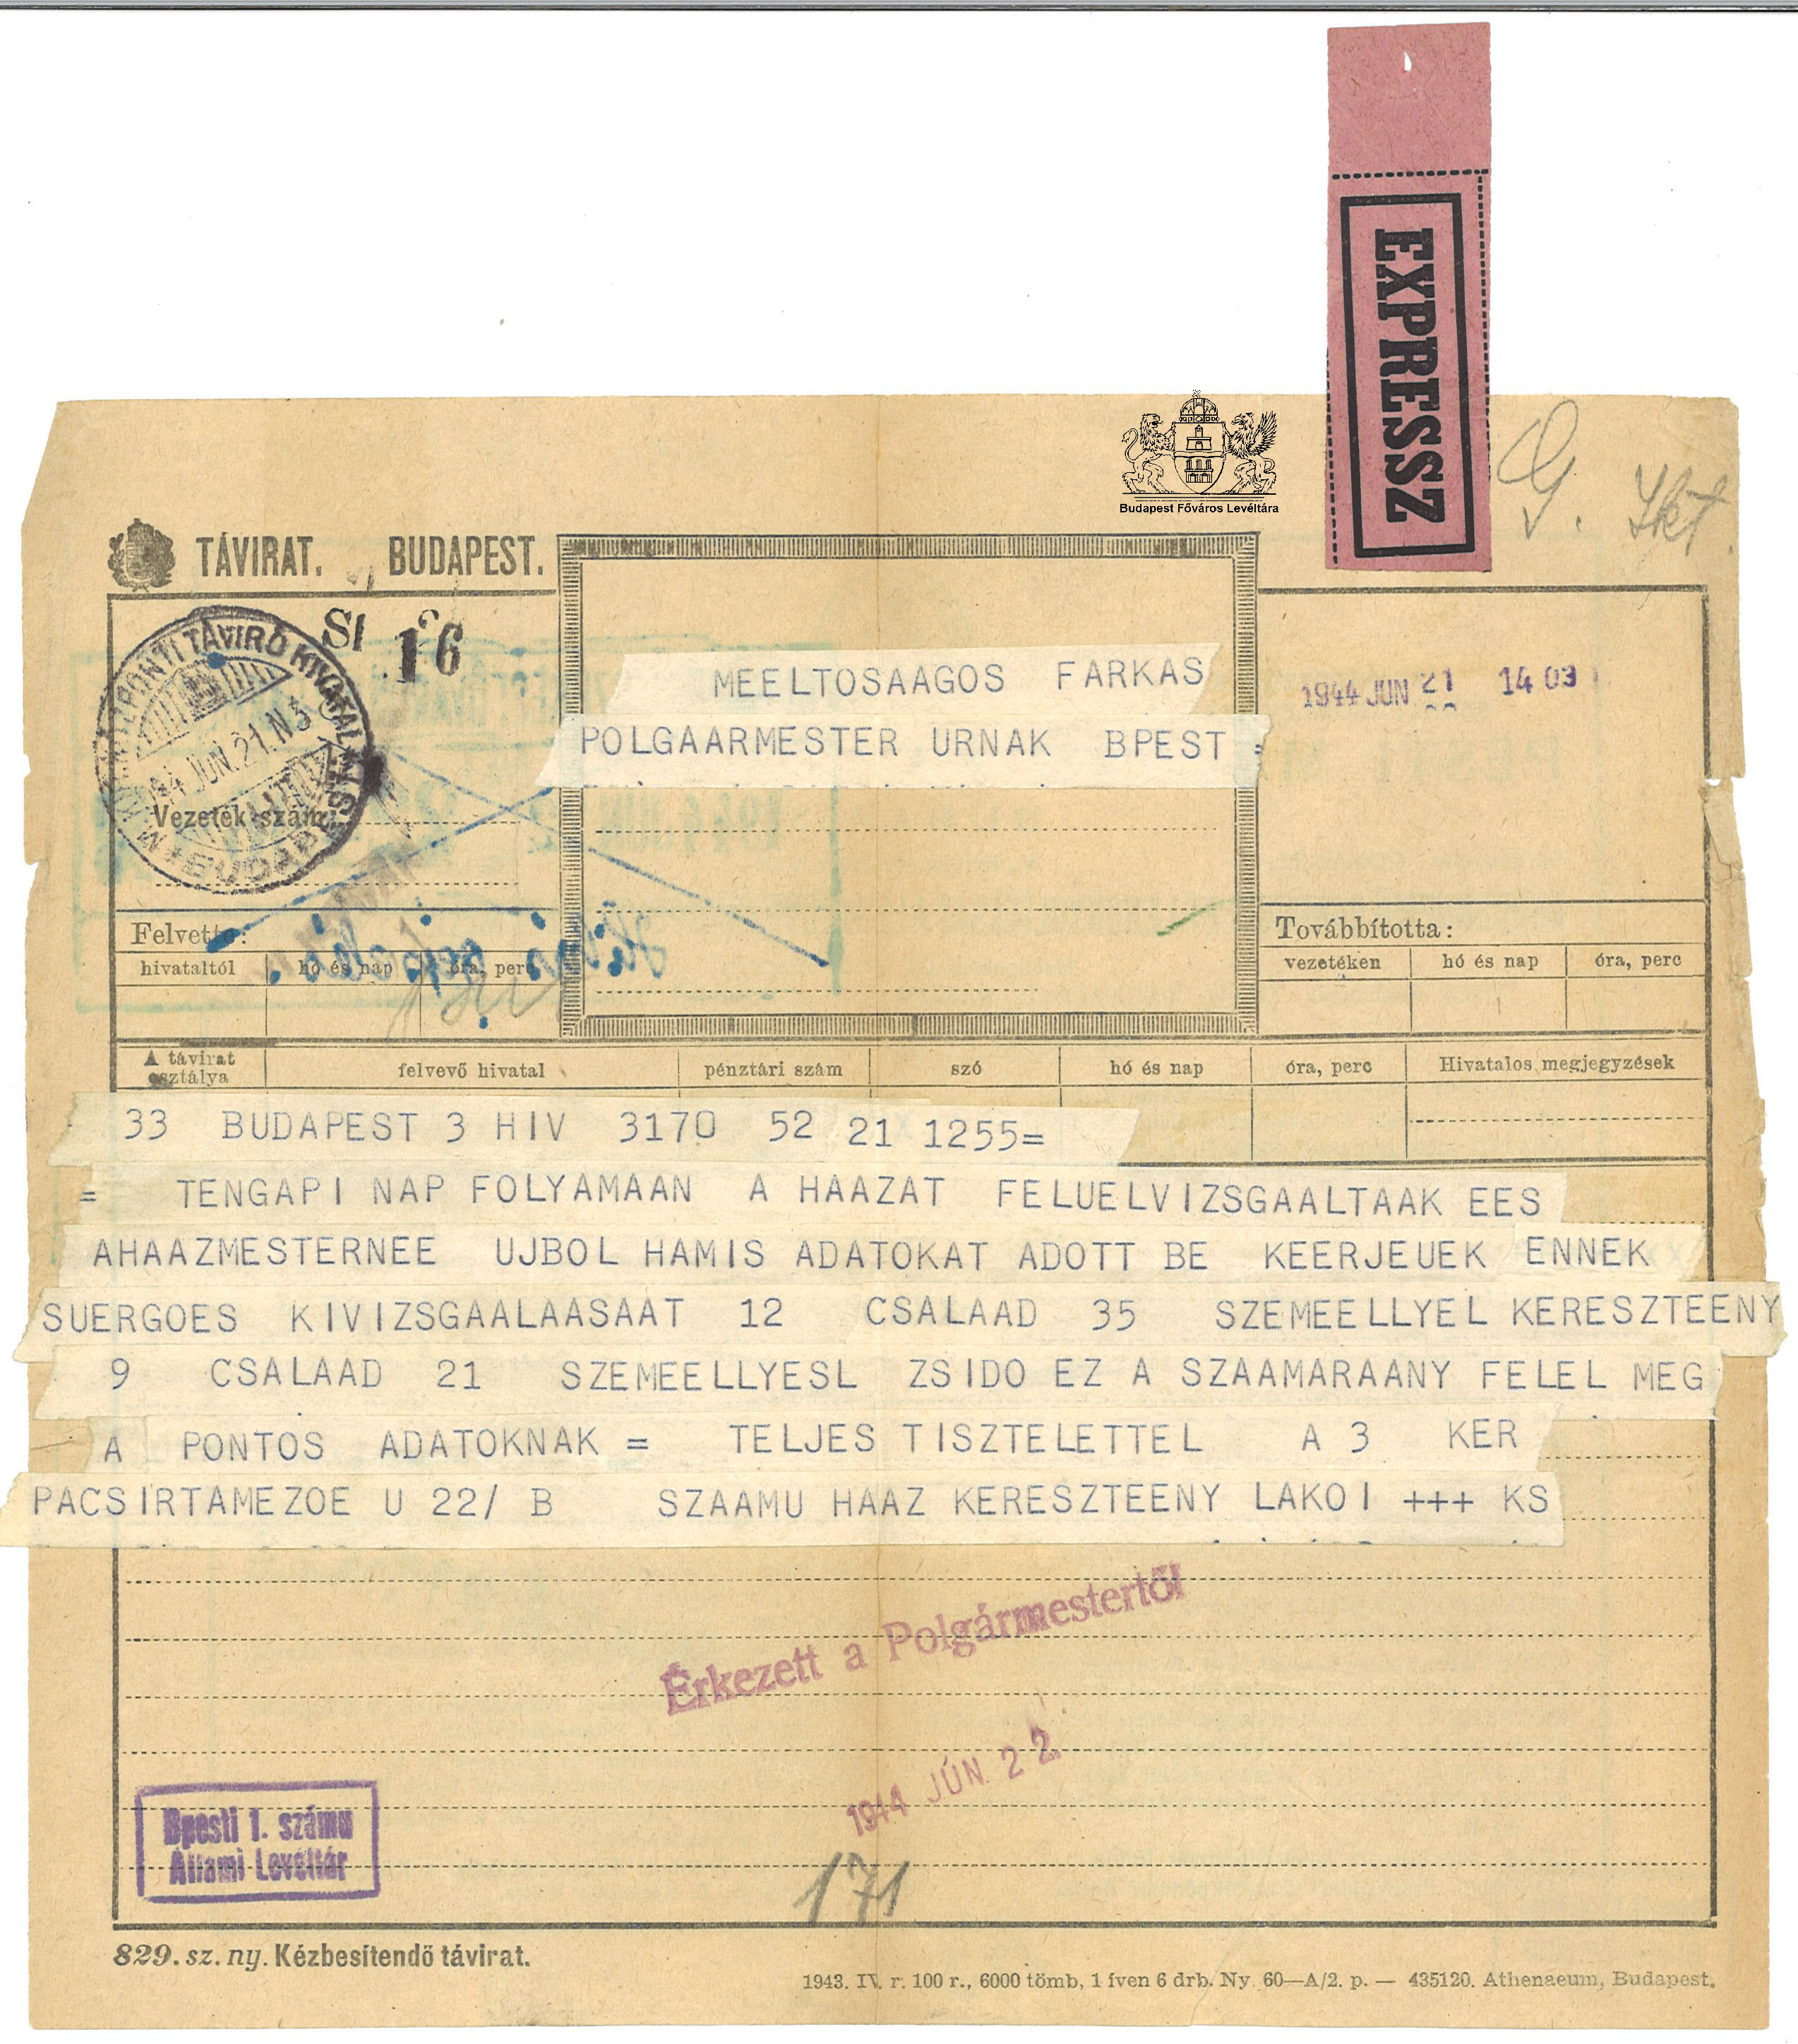 EXPRESSZ
Budapest Főváros Levéltára
G. Ikt.
TÁVIRAT. BUDAPEST.
KÖZPONTI TÁVIRÓ HIVATAL
944 JUN.21.N3
BUDAPEST
SI 16
MEELTOSAAGOS FARKAS
POLGAARMESTER URNAK BPEST =
1944 JUN 21 14 03
Vezeték-szám
Felvette:
hivataltól hó és nap óra, perc
Továbbította:
vezetéken hó és nap óra, perc
A távirat osztálya felvevő hivatal pénztári szám szó hó és nap óra, perc Hivatalos megjegyzések
33 BUDAPEST 3 HIV 3170 52 21 1255=
= TENGAPI NAP FOLYAMAAN A HAAZAT FELUELVIZSGAALTAAK EES
AHAAZMESTERNEE UJBOL HAMIS ADATOKAT ADOTT BE KEERJEUEK ENNEK
SUERGOES KIVIZSGAALAASAAT 12 CSALAAD 35 SZEMEELLYEL KERESZTEENY
9 CSALAAD 21 SZEMEELLYESL ZSIDO EZ A SZAAMARAANY FELEL MEG
A PONTOS ADATOKNAK = TELJES TISZTELETTEL A 3 KER
PACSIRTAMEZOE U 22/ B SZAAMU HAAZ KERESZTEENY LAKOI +++ KS
Érkezett a Polgármestertől
1944 JÚN 22.
171
Bpesti 1. számu
Állami Levéltár
829. sz. ny. Kézbesítendő távirat.
1943. IV. r. 100 r., 6000 tömb, 1 íven 6 drb. Ny. 60—A/2. p. — 435120. Athenaeum, Budapest.